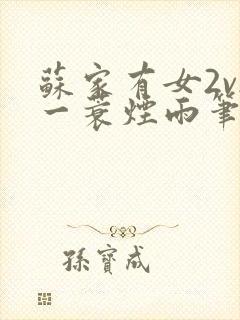 蘇家有女2v
一蓑煙雨筆
孫寶成